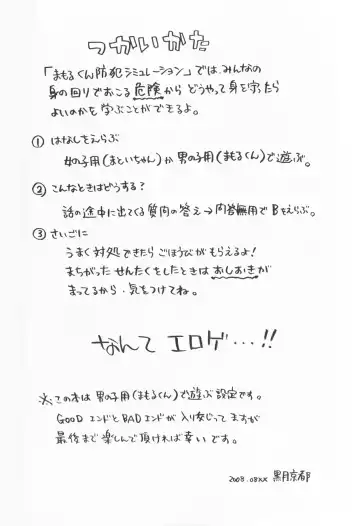 つかいかた
「まもるくん防犯シミュレーション」では、みんなの
身の回りでおこる危険からどうやって身を守ったら
よいのかを学ぶことができるよ。
① はなしをえらぶ
女の子用(まといちゃん)か男の子用(まもるくん)で遊ぶ。
② こんなときはどうする?
話の途中に出てくる質問の答え→問答無用でBをえらぶ。
③ さいごに
うまく対処できたらごほうびがもらえるよ!
まちがったせんたくをしたときはおしおきが
まってるから、気をつけてね。
なんてエロゲ…!!
※この本は男の子用(まもるくん)で遊ぶ設定です。
GOODエンドとBADエンドが入り交じってますが
最後まで楽しんで頂ければ幸いです。
2008.08XX 黒月京都